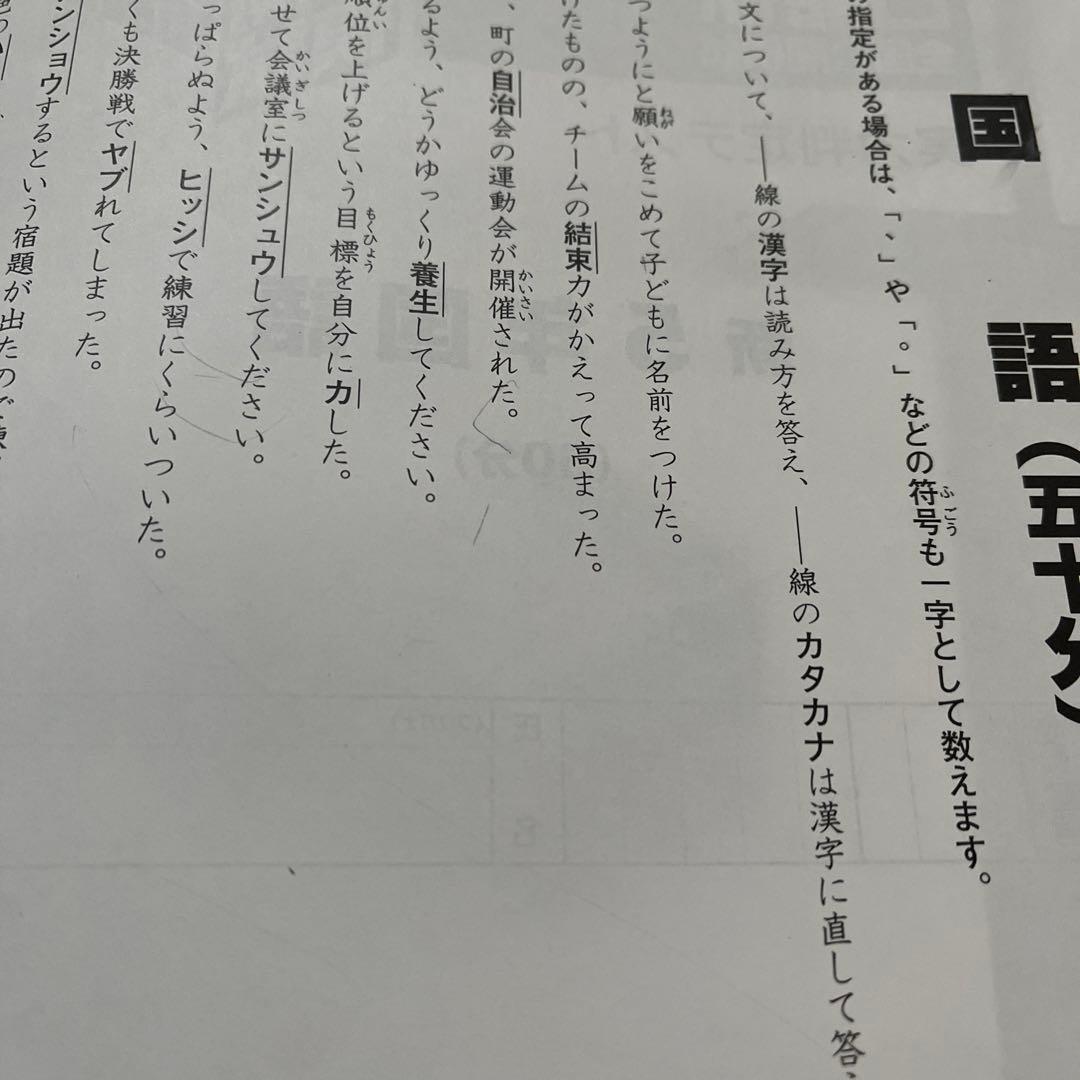 国語(五十分)
指定がある場合は、「、」や「。」などの符号も一字として数えます。
文について、——線の漢字は読み方を答え、——線のカタカナは漢字に直して答
つようにと願いをこめて子どもに名前をつけた。
けたものの、チームの結束力がかえって高まった。
、町の自治会の運動会が開催された。
るよう、どうかゆっくり養生してください。
順位を上げるという目標を自分にカした。
せて会議室にサンシュウしてください。
っぱらぬよう、ヒッシで練習にくらいついた。
くも決勝戦でヤブれてしまった。
ンショウするという宿題が出たので